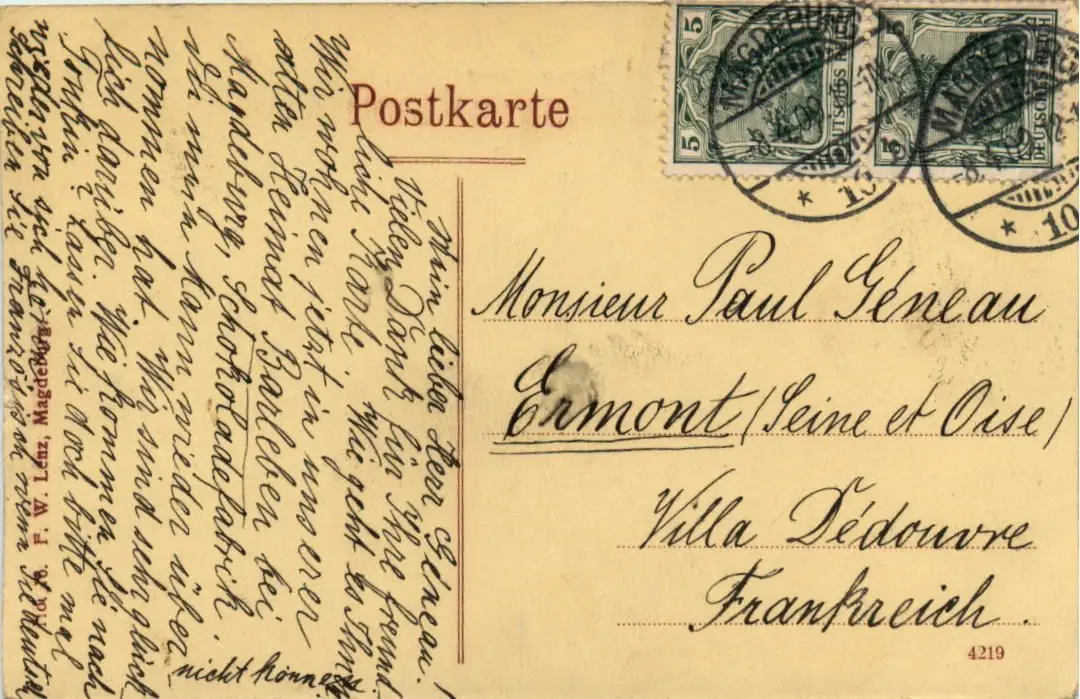 Postkarte
5 5 DEUTSCHES REICH
5 5 DEUTSCHES REICH
MAGDEBURG
* 10
MAGDEBURG
* 10
Mein lieber Herr Géneau!
Vielen Dank für Ihre freund-
liche Karte. Wie geht es Ihnen
Wir wohnen jetzt in unserer
alten Heimat Barleben bei
Magdeburg, Schokoladefabrik
die mein Mann wieder über
nommen hat. Wir sind sehr glück
lich darüber. Wie kommen Sie nach
Tonkin? Lassen Sie doch bitte mal
wieder von sich hören.
Schreiben Sie Französisch wenn Sie deutsch
nicht können
Monsieur Paul Géneau
Ermont (Seine et Oise)
Villa Dédouvre
Frankreich.
F. W. Lenz, Magdeburg.
4219